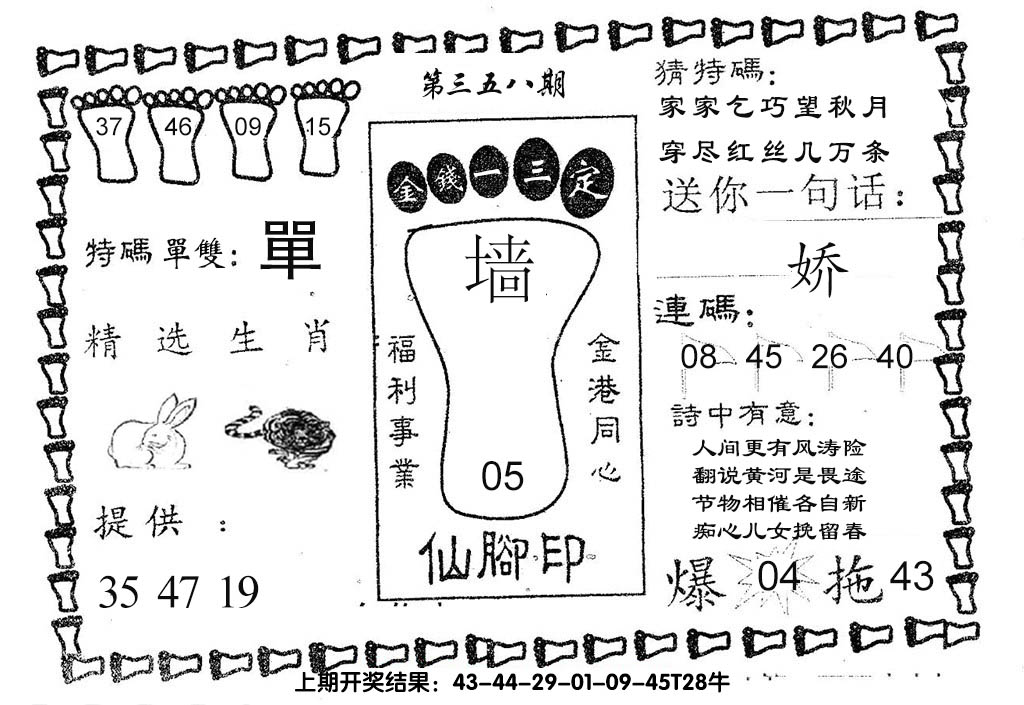 第三五八期
37 46 09 15
特碼單雙：單
精选生肖
提供：
35 47 19
金錢一三定
墙
福利事業
金港同心
05
仙腳印
猜特碼：
家家乞巧望秋月
穿尽红丝几万条
送你一句话：
娇
連碼：
08 45 26 40
詩中有意：
人间更有风涛险
翻说黄河是畏途
节物相催各自新
痴心儿女挽留春
爆 04 拖 43
上期开奖结果：43-44-29-01-09-45T28牛